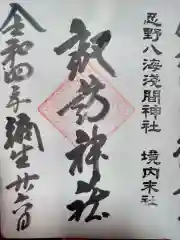 忍野八海浅間神社 境内末社
諏訪神社
令和四年弥生廿六日